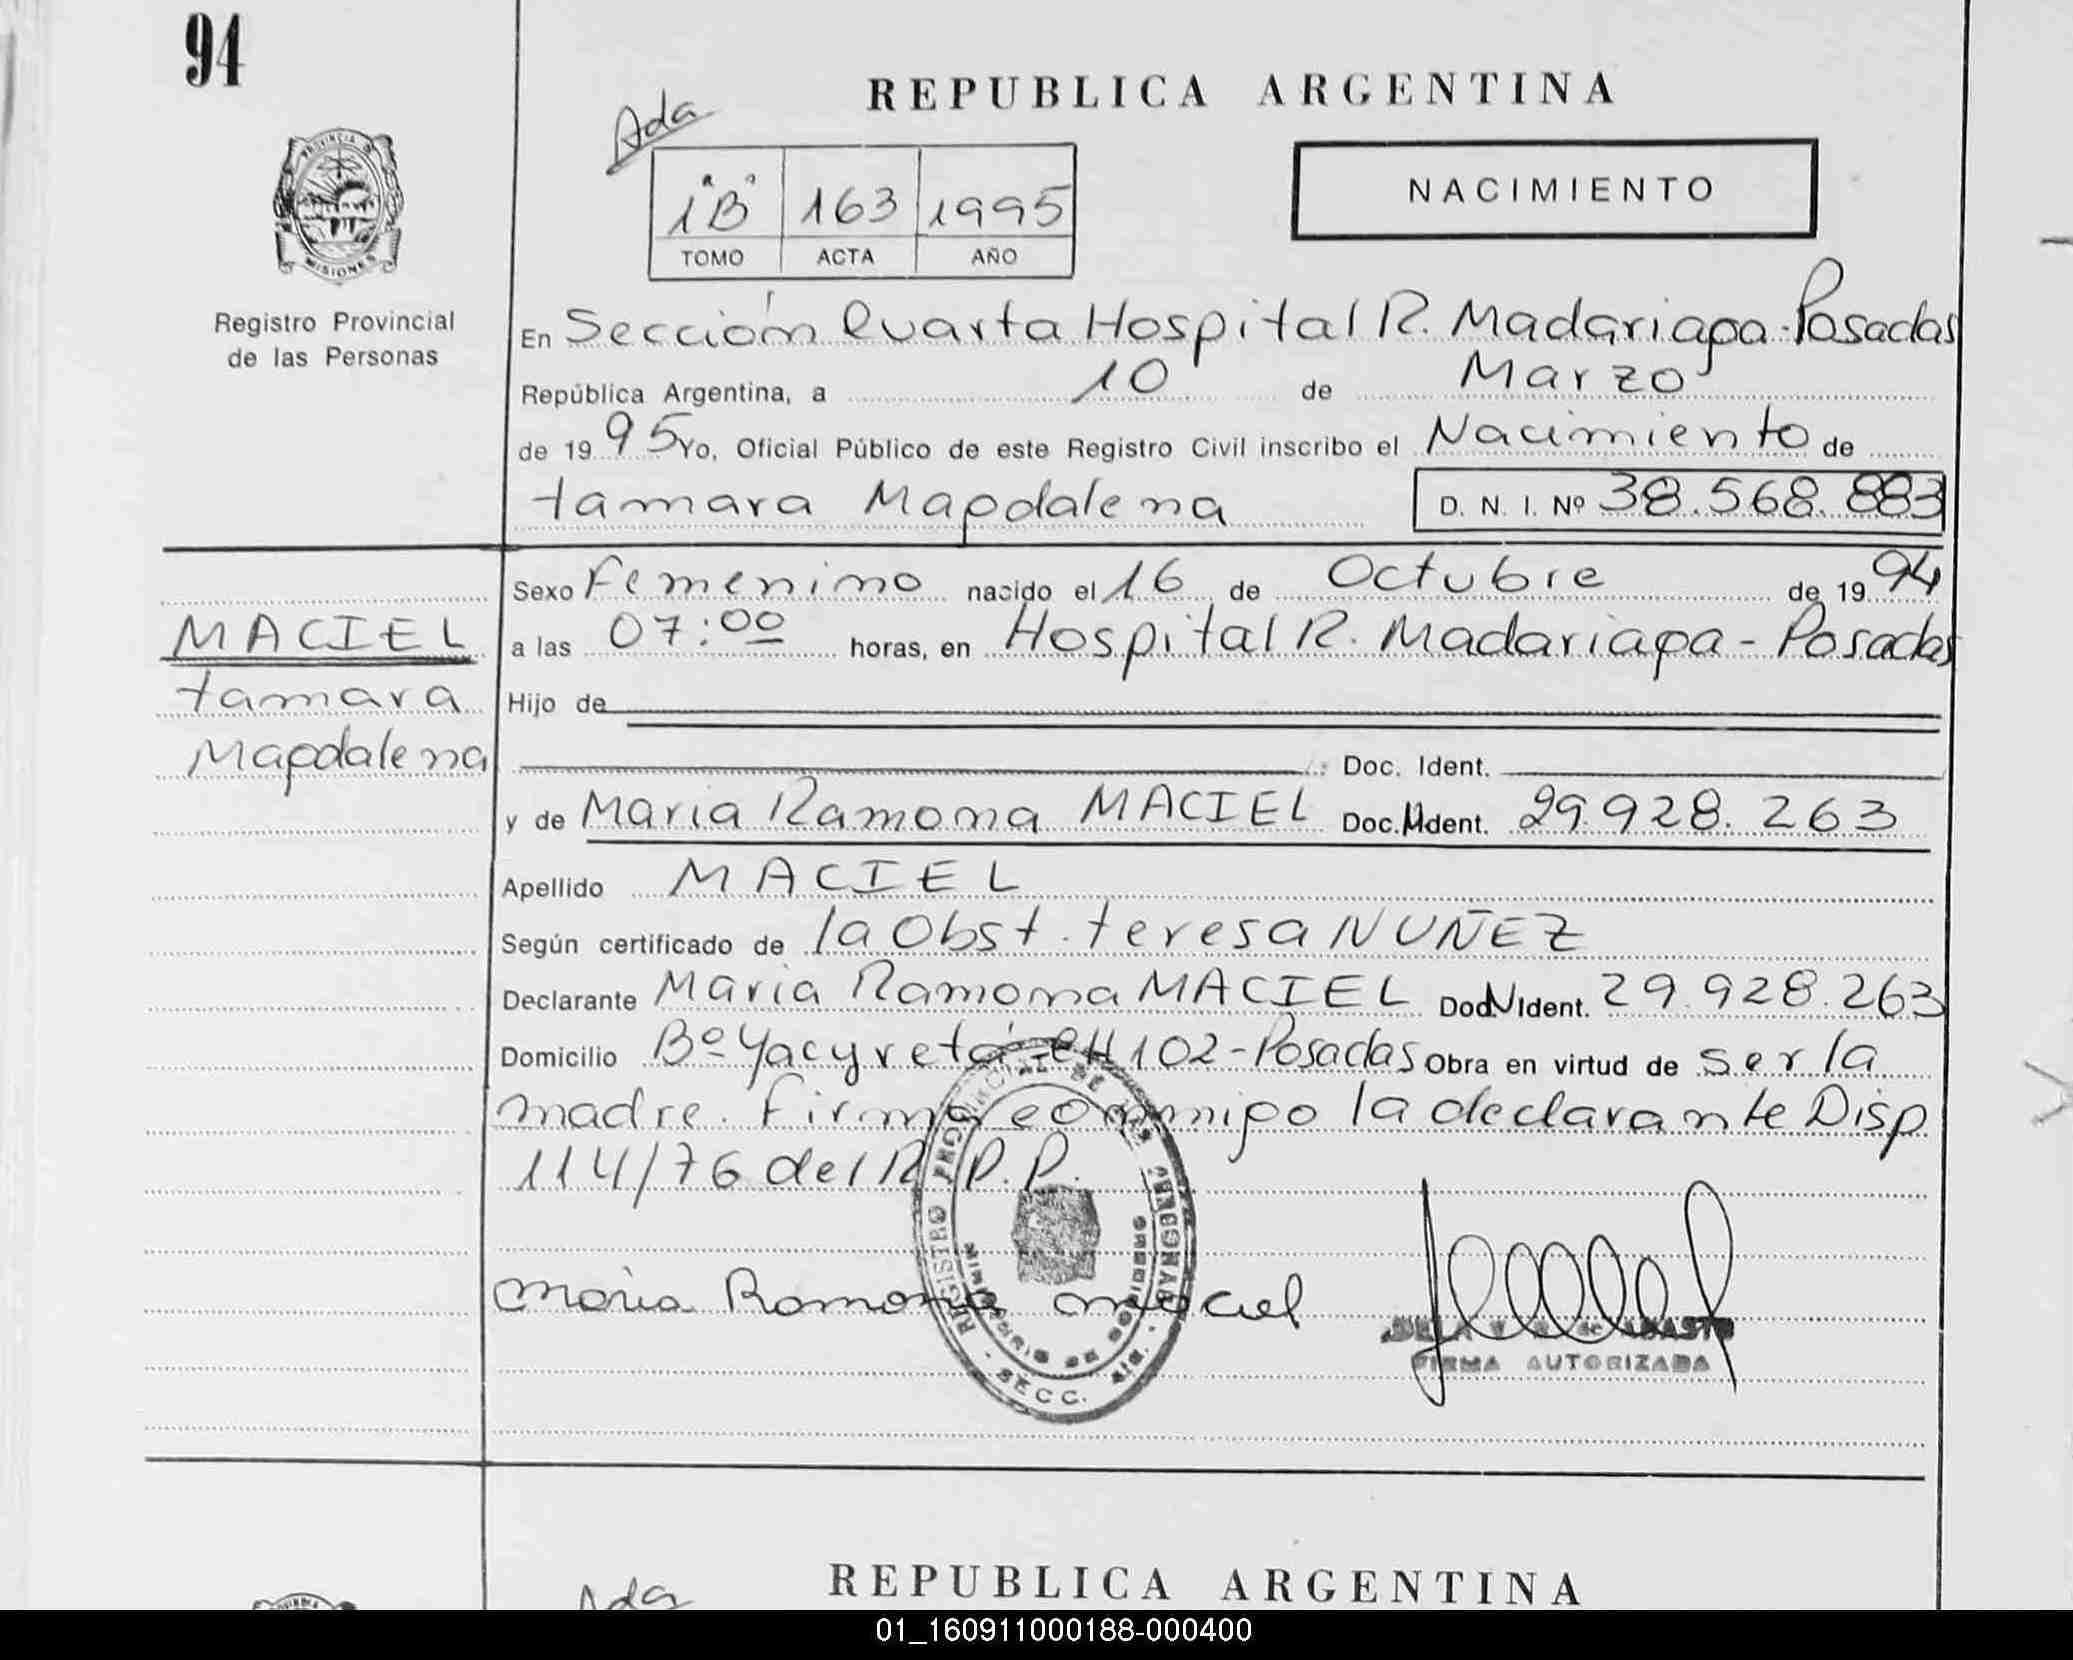 94
Ada
REPUBLICA ARGENTINA
NACIMIENTO
1"B" 163 1995
TOMO ACTA AÑO
PROVINCIA DE MISIONES
Registro Provincial
de las Personas
En Sección Cuarta Hospital R. Madariaga - Posadas
República Argentina, a 10 de Marzo
de 1995 Yo, Oficial Público de este Registro Civil inscribo el Nacimiento de
tamara Magdalena D. N. I. Nº 38.568.883
Sexo Femenino nacido el 16 de Octubre de 1994
MACIEL
tamara
Magdalena
a las 07:00 horas, en Hospital R. Madariaga - Posadas
Hijo de
Doc. Ident.
y de Maria Ramona MACIEL Doc. Ident. 29.928.263
Apellido MACIEL
Según certificado de la Obst. teresa NUÑEZ
Declarante Maria Ramona MACIEL Doc. Ident. 29.928.263
Domicilio Bº Yacyretá CH 102 - Posadas Obra en virtud de ser la
madre. Firma conmigo la declarante Disp
114/76 del R.P.P.
REGISTRO PROVINCIAL DE LAS PERSONAS
MINISTERIO DE GOBIERNO
SECC.
Maria Ramona Maciel
FIRMA AUTORIZADA
Ada
REPUBLICA ARGENTINA
01_160911000188-000400